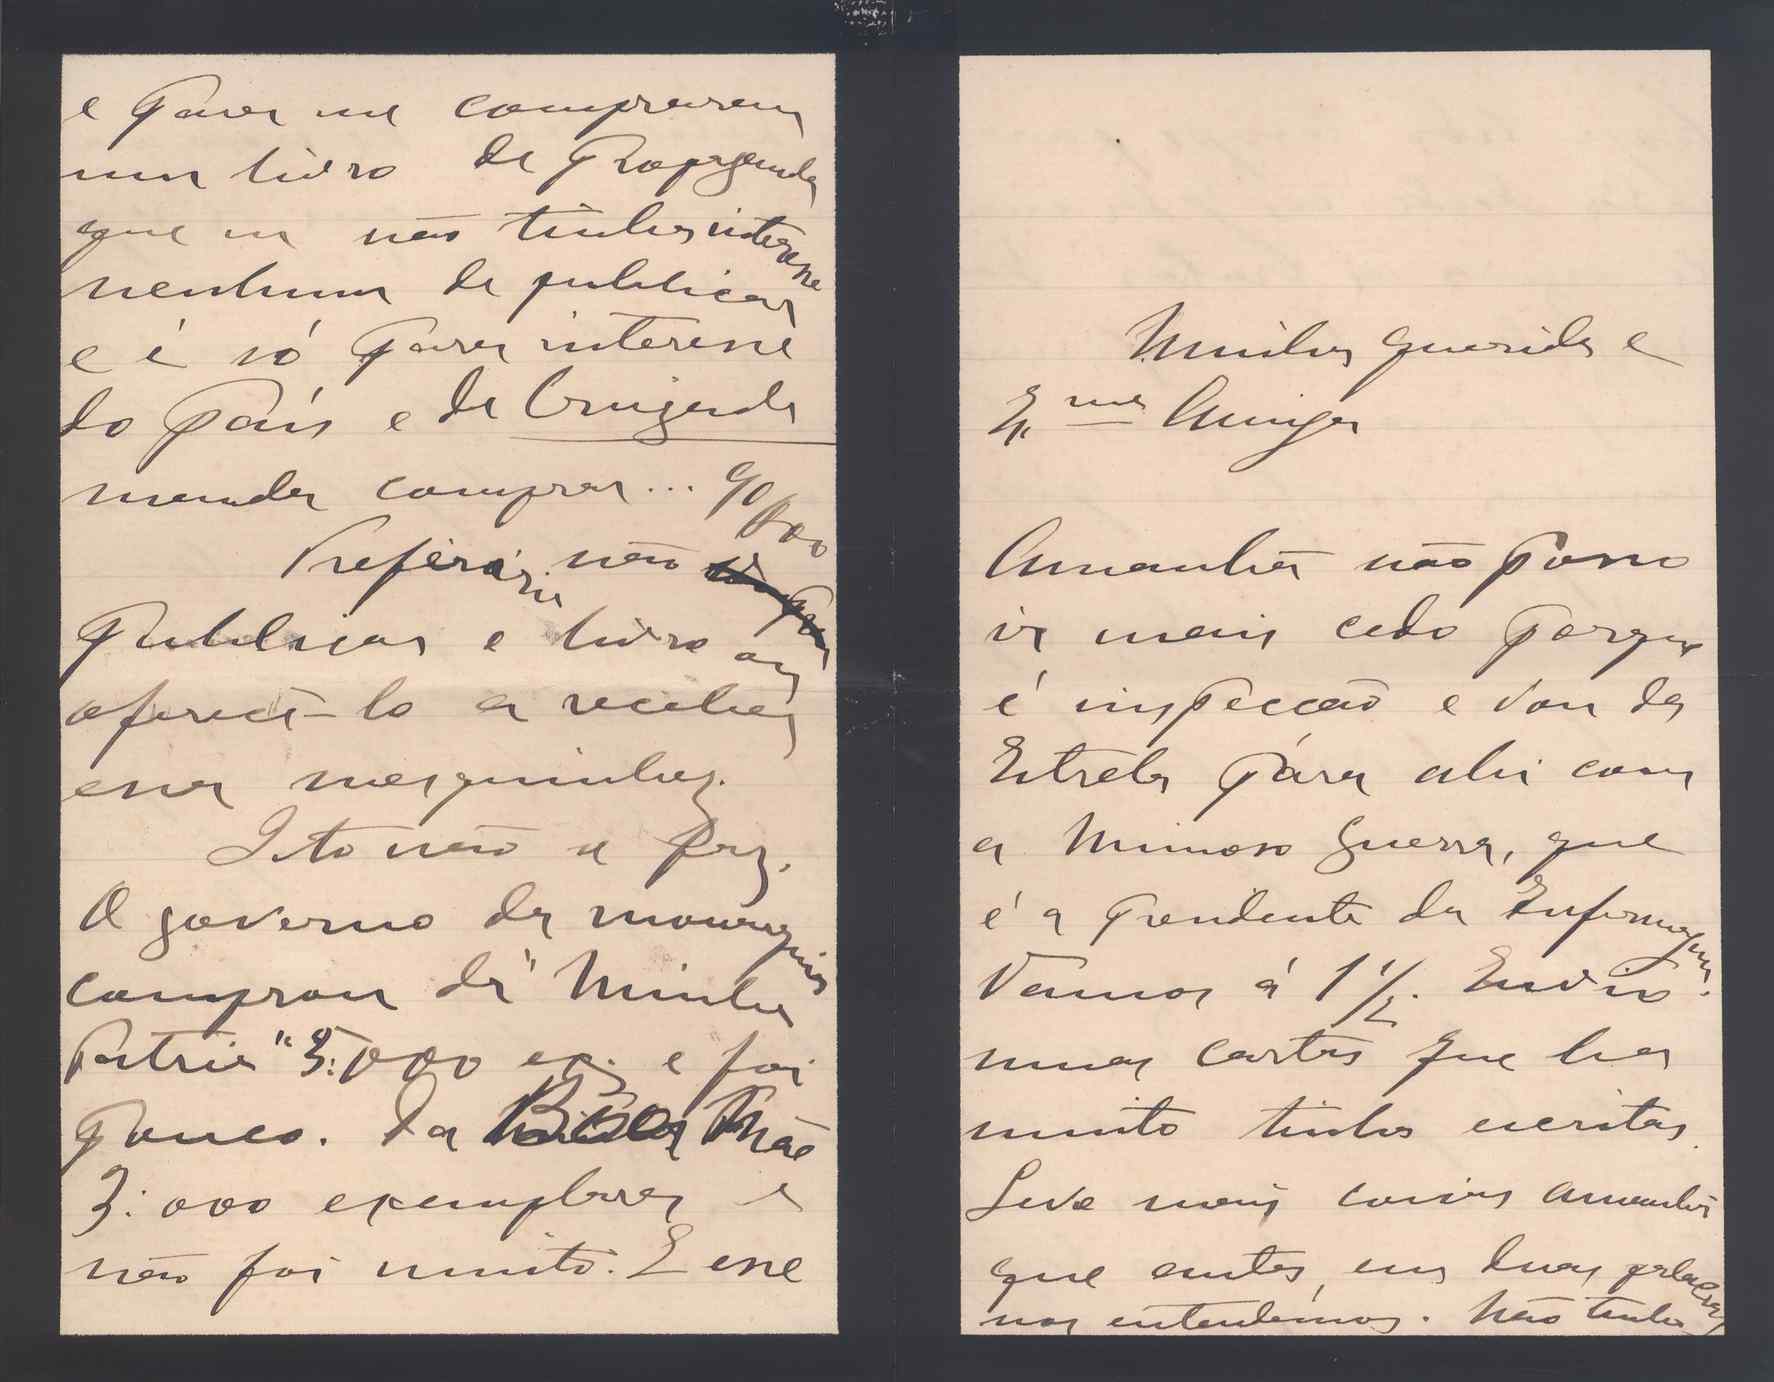 e para me comprarem
um livro de propaganda
que eu não tinha interesse
nenhum de publicar
e é só para interesse
do País e da Cruzada
manda comprar...
Preferiria não
publicar o livro ou
oferecê-lo a receber
essa mesquinhez.
Isto não se faz.
O governo da monarquia
comprou da "Minha
Patria" 5:000 ex. e foi
pouco. Da Boa Mãe
3:000 exemplares e
não foi muito. E esse
Minha querida e
Ex.ma Amiga
Amanhã não posso
ir mais cedo porque
é inspecção e vou da
Estrela para ahi com
a Mimoso Guerra, que
é a presidente da Enfermagem.
Vamos á 1 1/2. Envio
umas cartas que ha
muito tinha escritas.
Leve mais coisas amanhã
que antes, em duas palavras
nos entendemos. Não tenha